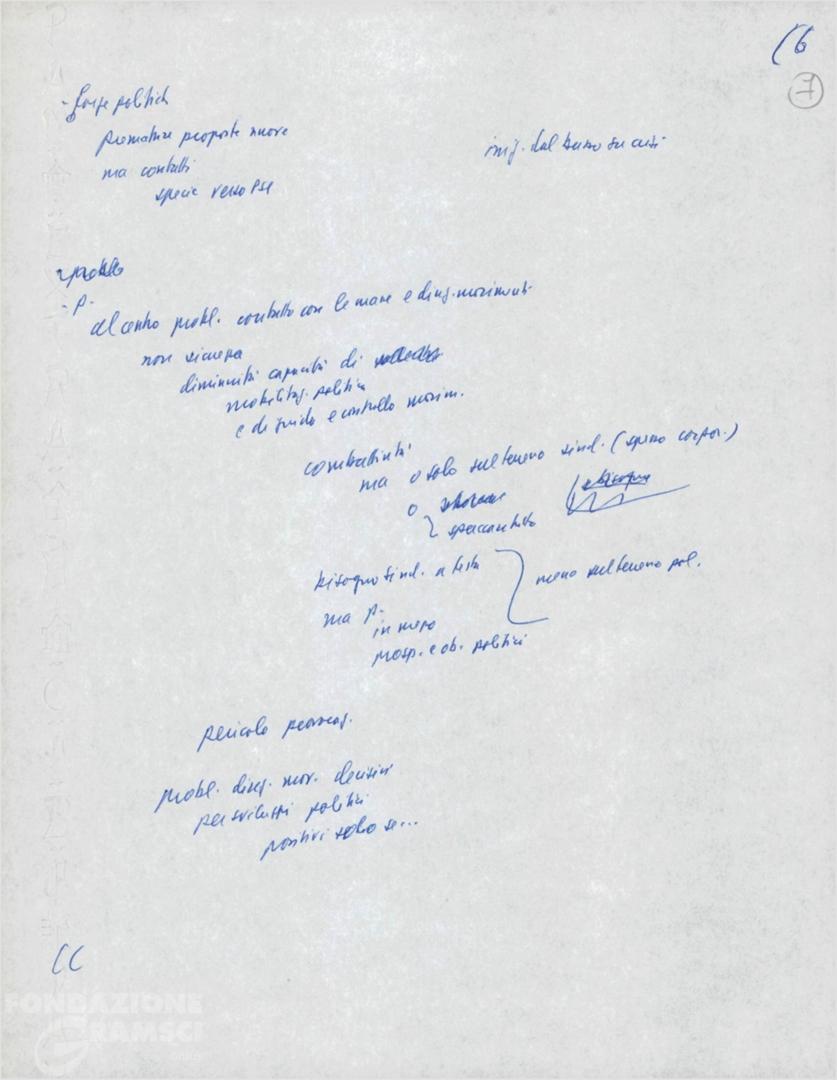 (6
7
- Forze politich
premature proposte nuove
ma contatti
specie verso PSI
- probl
- p.
al centro probl. contatto con le masse e direz. movimenti
non sicura
diminuita capacità di
mobilitaz. politica
e di guida e controllo movim.
combattività
ma o solo sul terreno sind. (spesso corpor.)
o
spaccatutto
bisogno sind. a testa
ma p.
in meno
prosp. e ob. politici
meno sul terreno pol.
pericolo provocaz.
probl. direz. mov. decisivi
per sviluppi politici
positivi solo se...
CC
FONDAZIONE
GRAMSCI